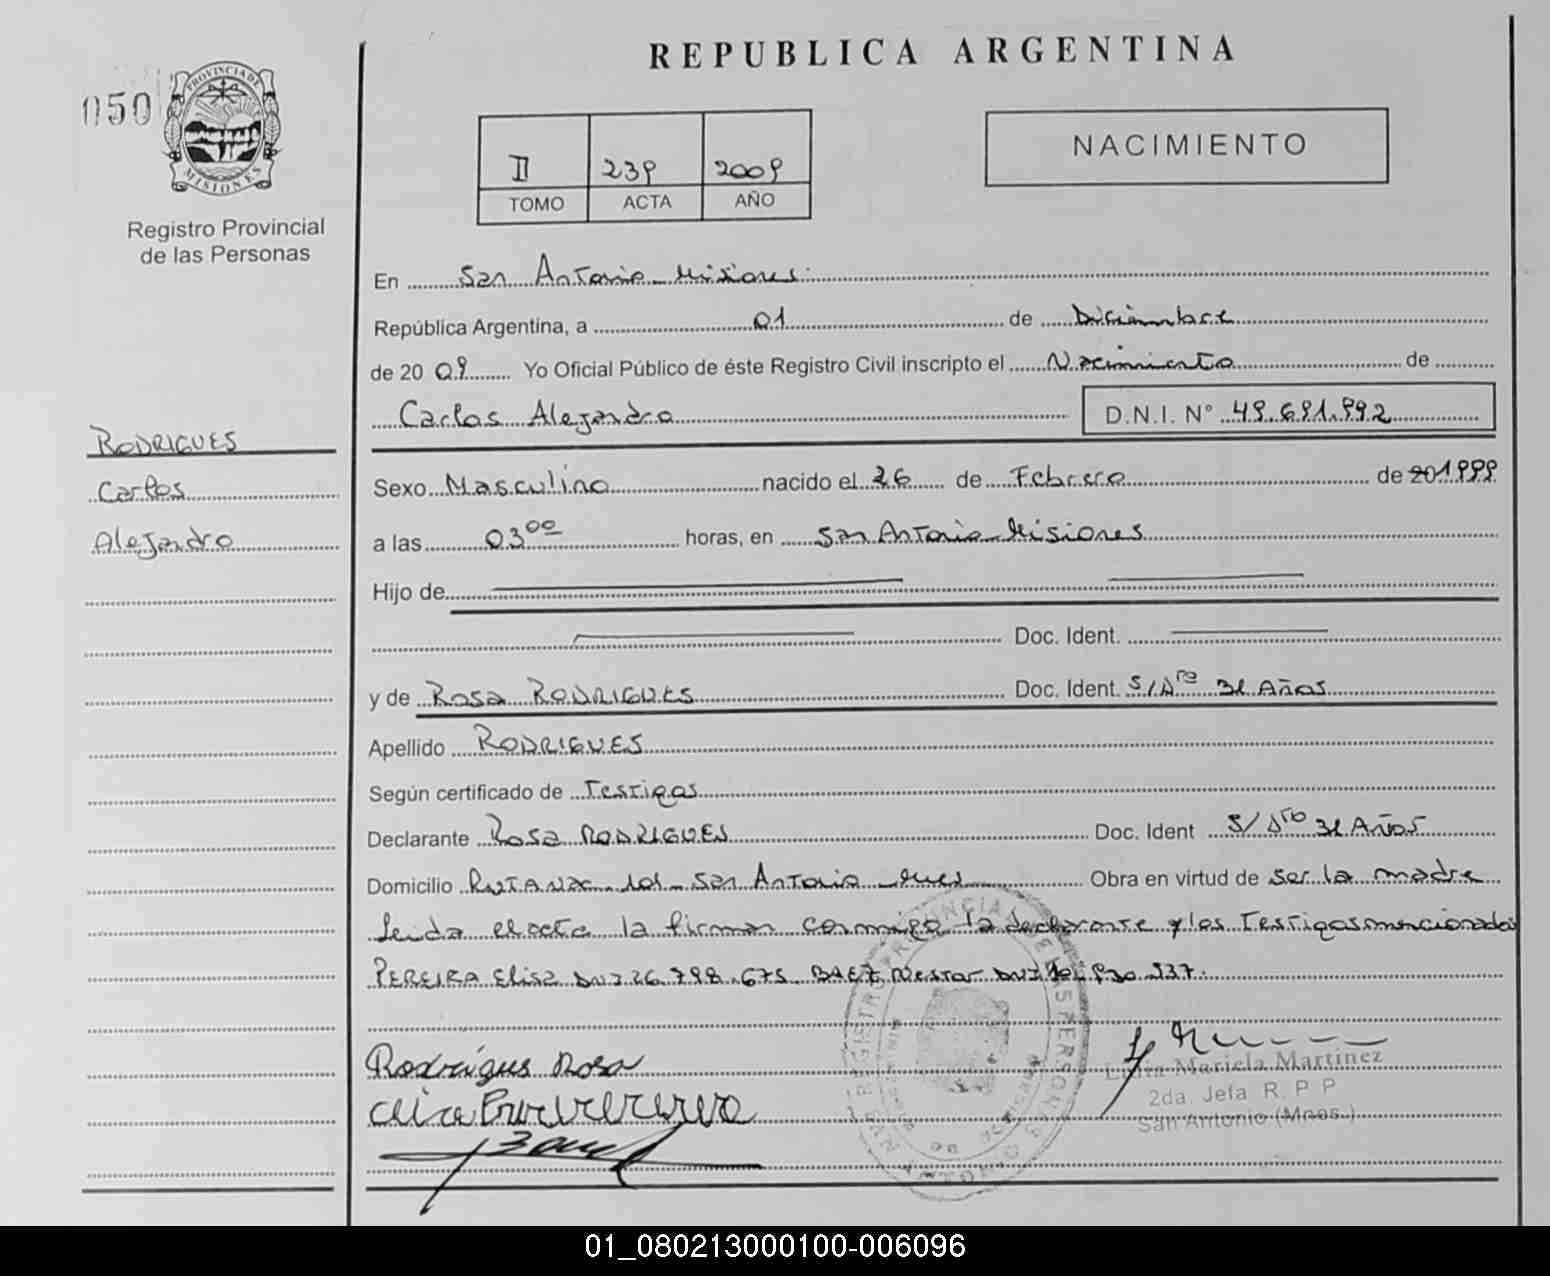 REPUBLICA ARGENTINA
050
PROVINCIA DE
MISIONES
Registro Provincial
de las Personas
II 239 2009
TOMO ACTA AÑO
NACIMIENTO
En San Antonio - Misiones
República Argentina, a 01 de Diciembre
de 20 09 Yo Oficial Público de éste Registro Civil inscripto el Nacimiento de
Carlos Alejandro D.N.I. N° 49.691.992
RODRIGUES
Carlos
Alejandro
Sexo Masculino nacido el 26 de Febrero de 201999
a las 03 00 horas, en San Antonio - Misiones
Hijo de
Doc. Ident.
y de Rosa RODRIGUES Doc. Ident. S/Dto 31 Años
Apellido RODRIGUES
Según certificado de Testigos
Declarante Rosa RODRIGUES Doc. Ident S/Dto 31 Años
Domicilio RUTA NAC. 101 - San Antonio - Mnes Obra en virtud de ser la madre
Leida el acta la firman conmigo la declarante y los Testigos mencionados
PEREIRA Elisa DNI 26.798.675 BAEZ Nestor DNI 937.
Rodrigues Rosa
Mariela Martinez
2da. Jefa R. P. P
San Antonio (Mnes.)
01_080213000100-006096